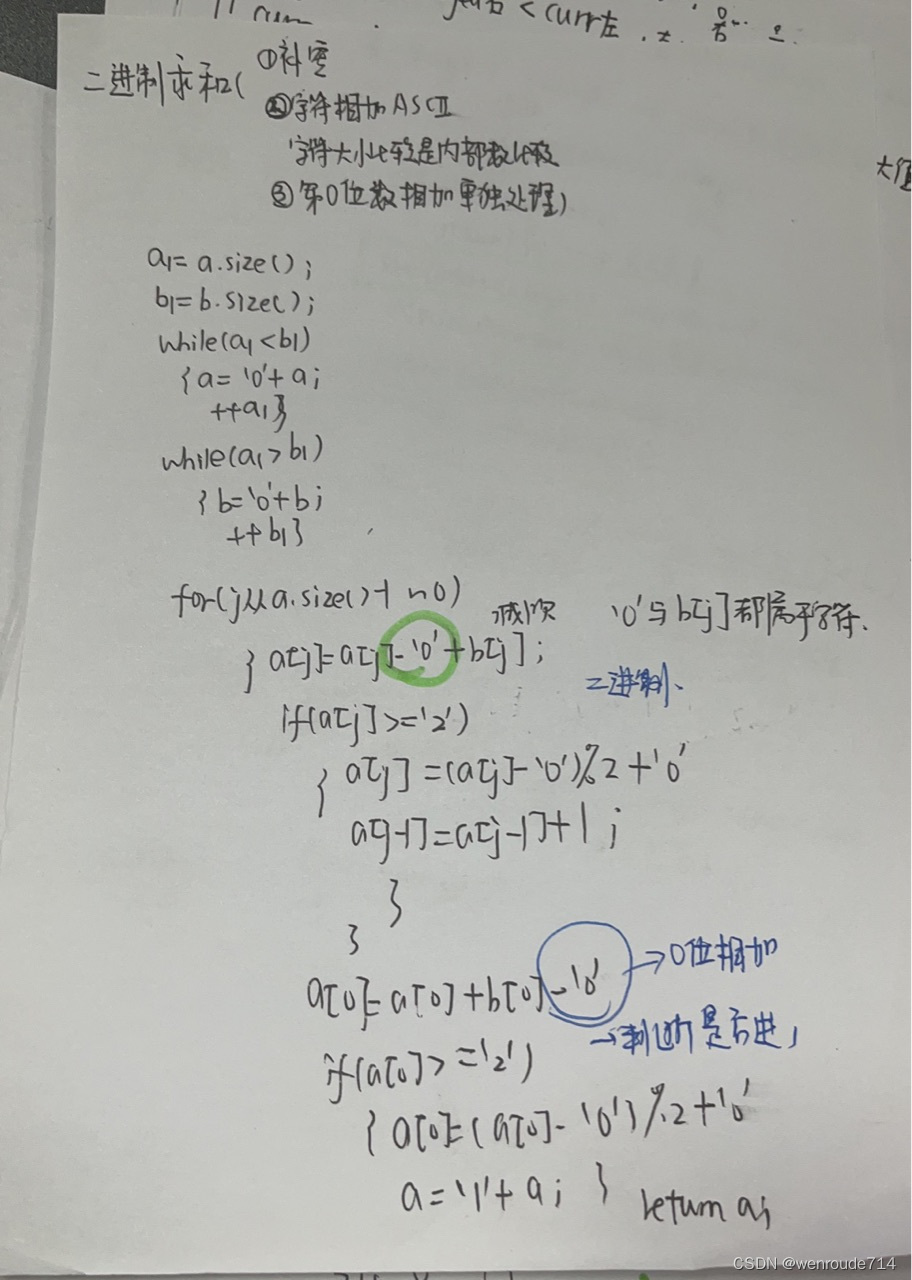 curr左
二进制求和(
①补零
②字符相加ASCII
字符大小比较是内部数比较
③第0位数相加单独处理)
大值
a1=a.size();
b1=b.size();
while(a1<b1)
{a='0'+a;
++a1}
while(a1>b1)
{b='0'+b;
++b1}
for(j从a.size()-1 ~0)
减1次 '0'与b[j]都属于字符.
{a[j]=a[j]-'0'+b[j];
二进制、
if(a[j]>='2')
{a[j]=(a[j]-'0')%2+'0'
a[j-1]=a[j-1]+1;
}
}
a[0]=a[0]+b[0]-'0' →0位相加
→判断是否进1
if(a[0]>='2')
{a[0]=(a[0]-'0')%2+'0'
a='1'+a; } return a;
CSDN @wenroude714